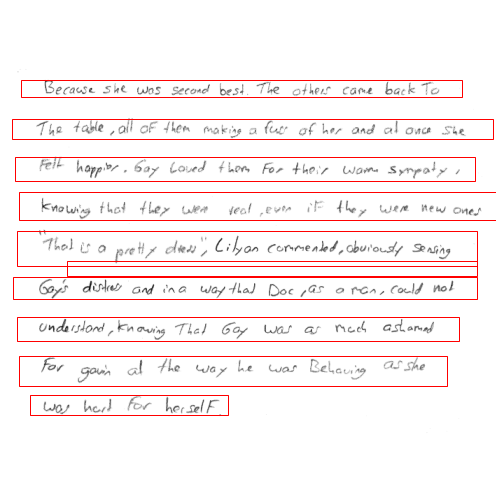 Because she was second best. The others came back To
The table, all of them making a fuss of her and at once she
Felt happier. Gay Loved them For their warm sympaty,
Knowing that they were real, even if they were new ones
"That is a pretty dress", Lilyan commented, obviously sensing
Gay's distress and in a way that Doc, as a man, could not
understand, Knowing That Gay was as much ashamed
For gavin at the way he was Behaving as she
was hard For herself.